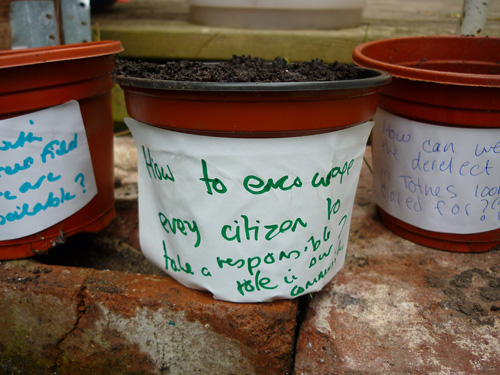 with
Field
are
available?
How to encourage
every citizen to
take a responsible?
role in our
community
How can we
the derelict
Totnes look
cared for??